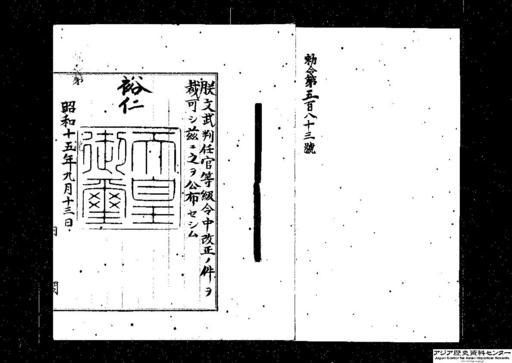 勅令第五百八十三號
朕文武判任官等級令中改正ノ件ヲ
裁可シ茲ニ之ヲ公布セシム
裕仁
天皇御璽
昭和十五年九月十三日
第
閣
アジア歴史資料センター
Japan Center for Asian Historical Records